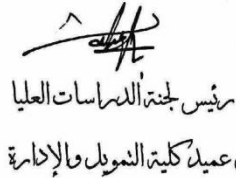 رئيس لجنة الدراسات العليا
عميد كلية التمويل والإدارة